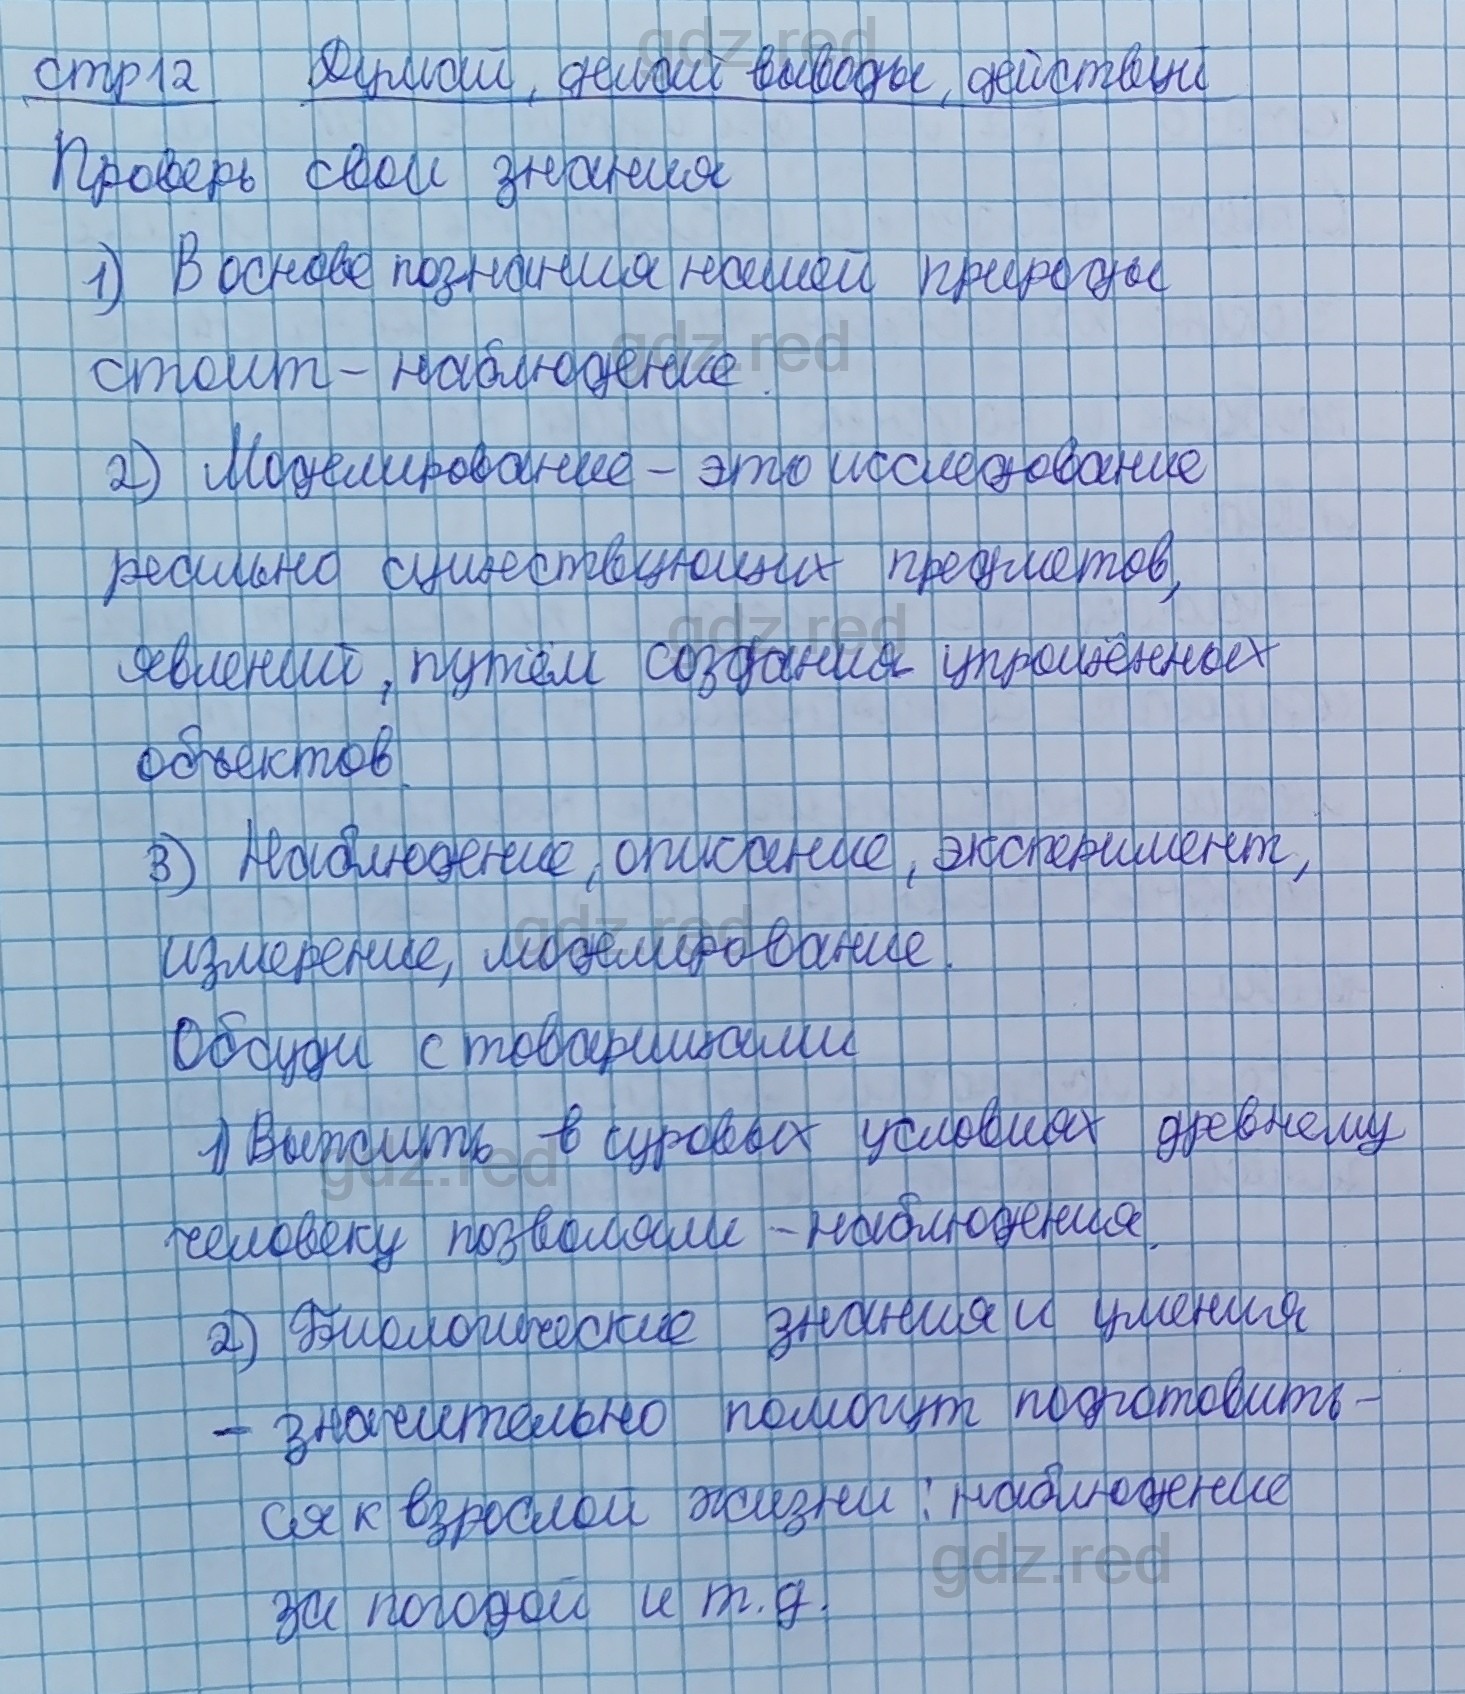 стр12 Думай, делай выводы, действуй
Проверь свои знания
1) В основе познания нашей природы
стоит - наблюдение.
2) Моделирование - это исследование
реально существующих предметов,
явлений, путём создания упрощённых
объектов.
3) Наблюдение, описание, эксперимент,
измерение, моделирование.
Обсуди с товарищами
1) Выжить в суровых условиях древнему
человеку позволяли - наблюдения.
2) Биологические знания и умения
- значительно помогут подготовить-
ся к взрослой жизни: наблюдение
за погодой и т.д.
gdz.red
gdz.red
gdz.red
gdz.red
gdz.red
gdz.red